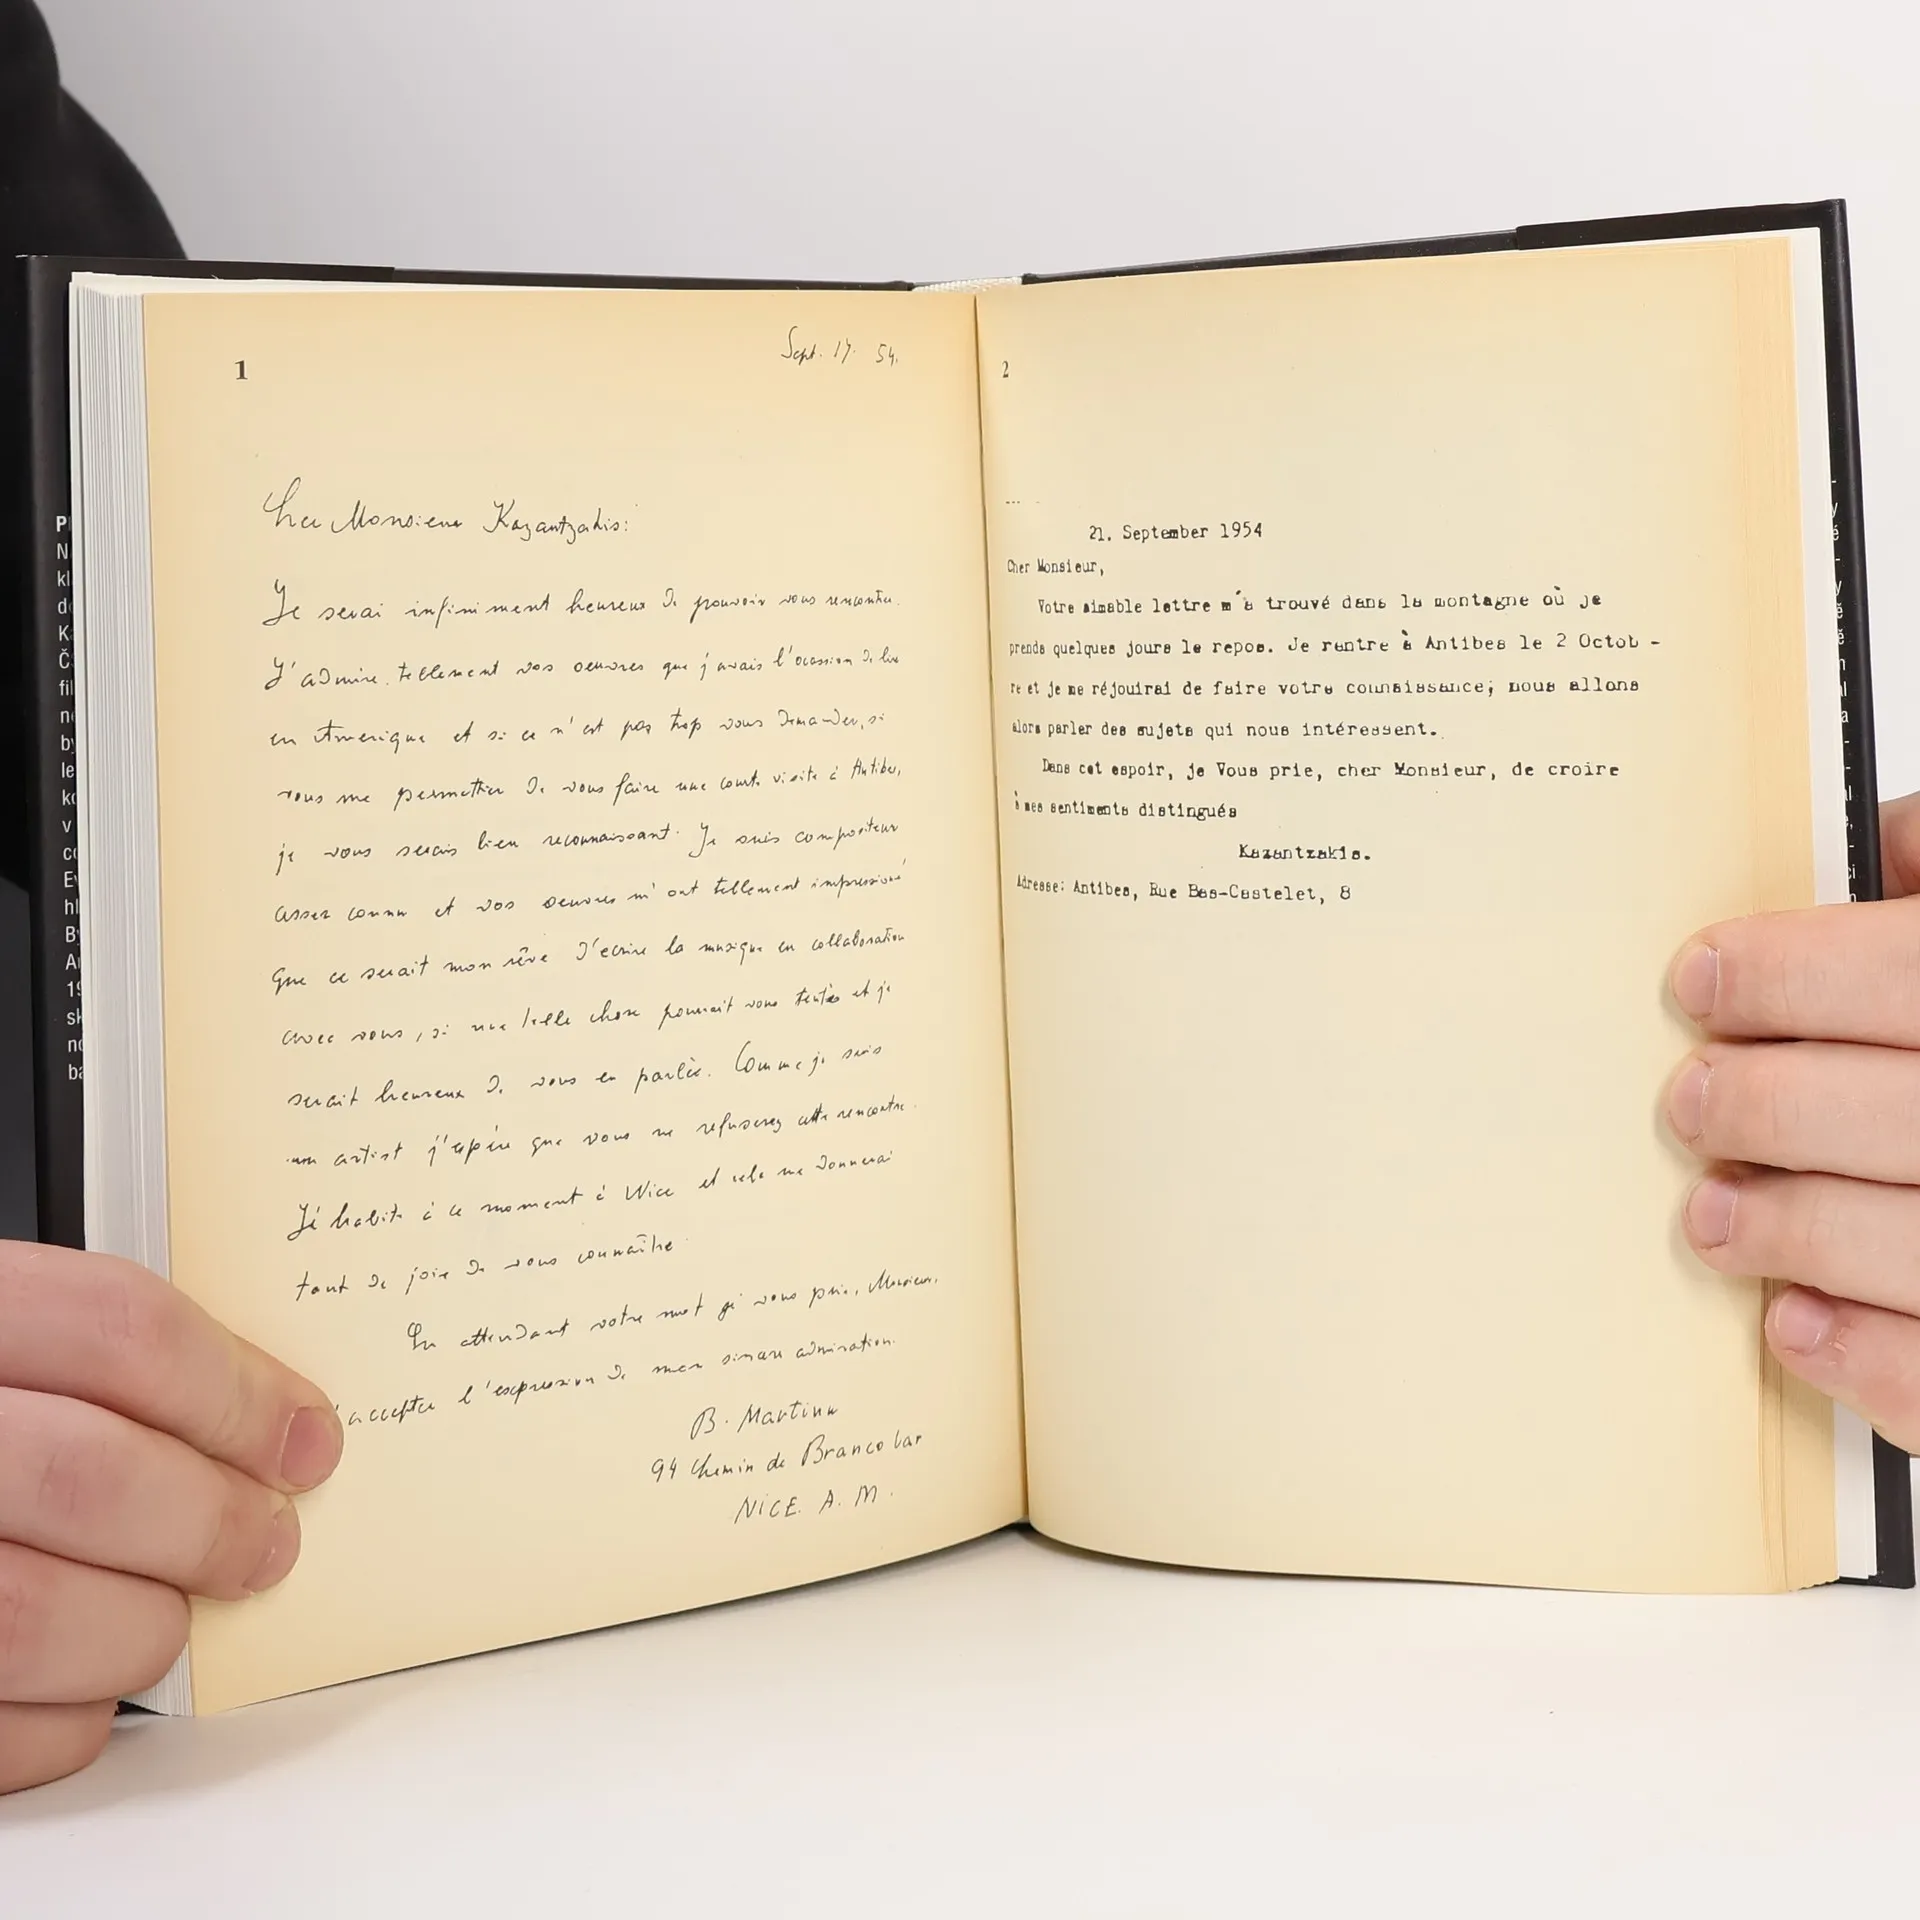 1
Sept. 17. 54.
Cher Monsieur Kazantzakis:
Je serai infiniment heureux de pouvoir vous rencontrer.
J'admire tellement vos oeuvres que j'avais l'ocassion de lire
en Amerique et si ce n'est pas trop vous demander, si
vous me permettier de vous faire une courte visite à Antibes,
je vous serais bien reconnaissant. Je suis compositeur
assez connu et vos oeuvres m'ont tellement impressioné
que ce serait mon rêve d'écrire la musique en collaboration
avec vous, si une telle chose pourrait vous tenter et je
serait heureux de vous en parler. Comme je suis
un artist j'espère que vous ne refuserez cette rencontre.
J'habite à ce moment à Nice et cela me donnerai
tant de joie de vous connaître.
En attendant votre mot je vous prie, Monsieur,
d'accepter l'expression de mon sincere admiration.
B. Martinu
94 Chemin de Brancolar
NICE. A. M.
2
21. September 1954
Cher Monsieur,
Votre aimable lettre m'a trouvé dans la montagne où je
prends quelques jours le repos. Je rentre à Antibes le 2 Octob -
re et je me réjouirai de faire votre connaissance; nous allons
alors parler des sujets qui nous intéressent.
Dans cet espoir, je Vous prie, cher Monsieur, de croire
à mes sentiments distingués
Kazantzakis.
Adresse: Antibes, Rue Bas-Castelet, 8